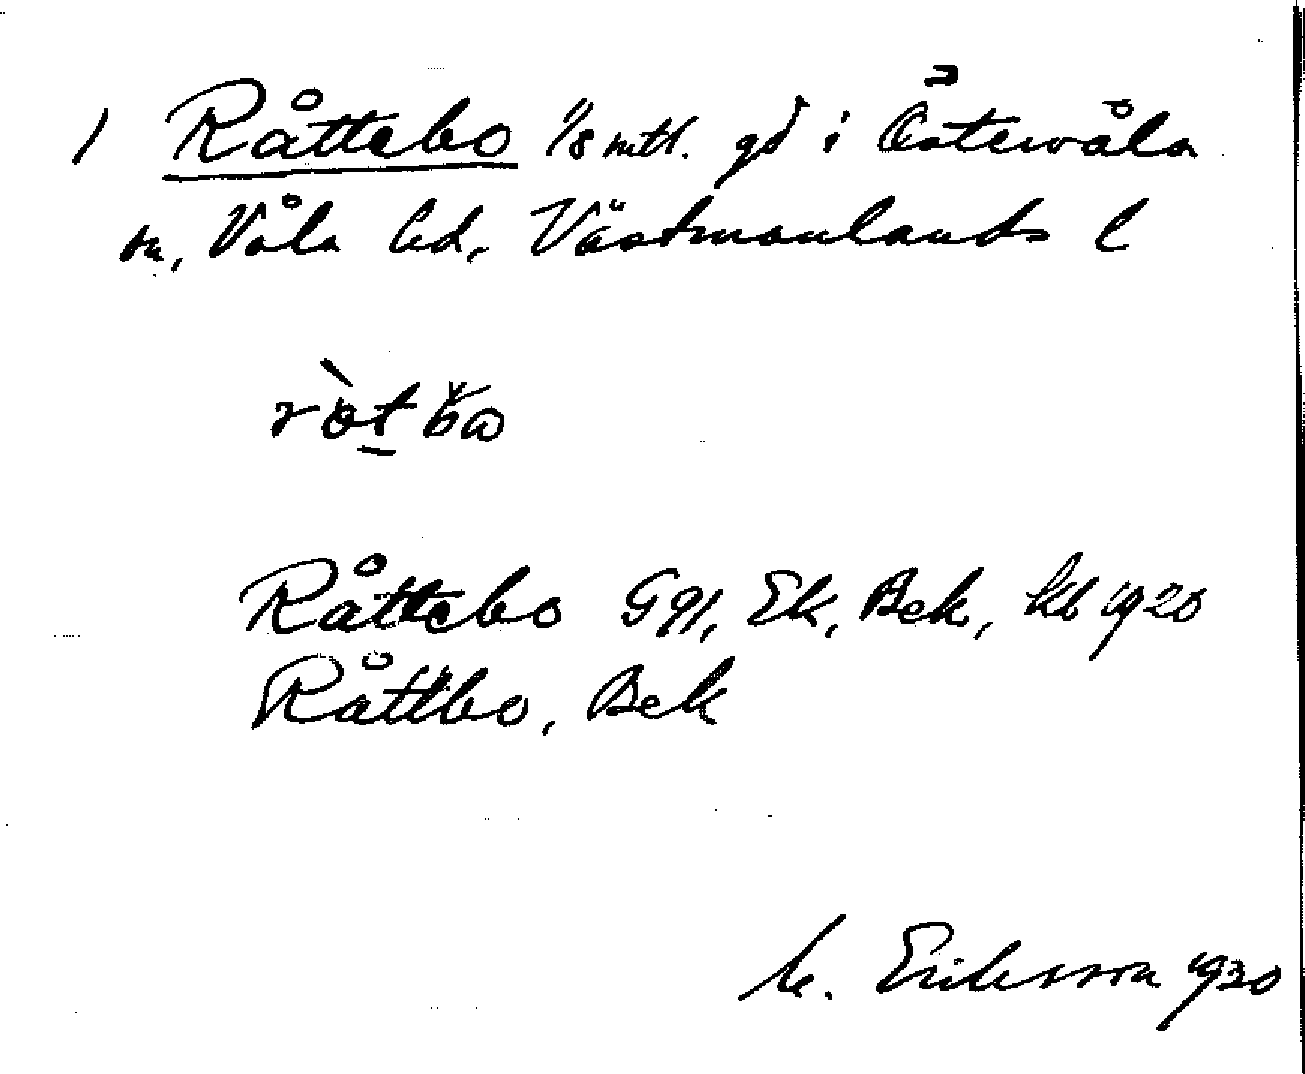 1 Råttebo 1/8 mtl. gd i Östervåla
sn, Våla hd, Västmanlands l
Råttebo GEK, Ek, Bek, kb 1920
Råttbo, Bek
M. Eriksson 1930